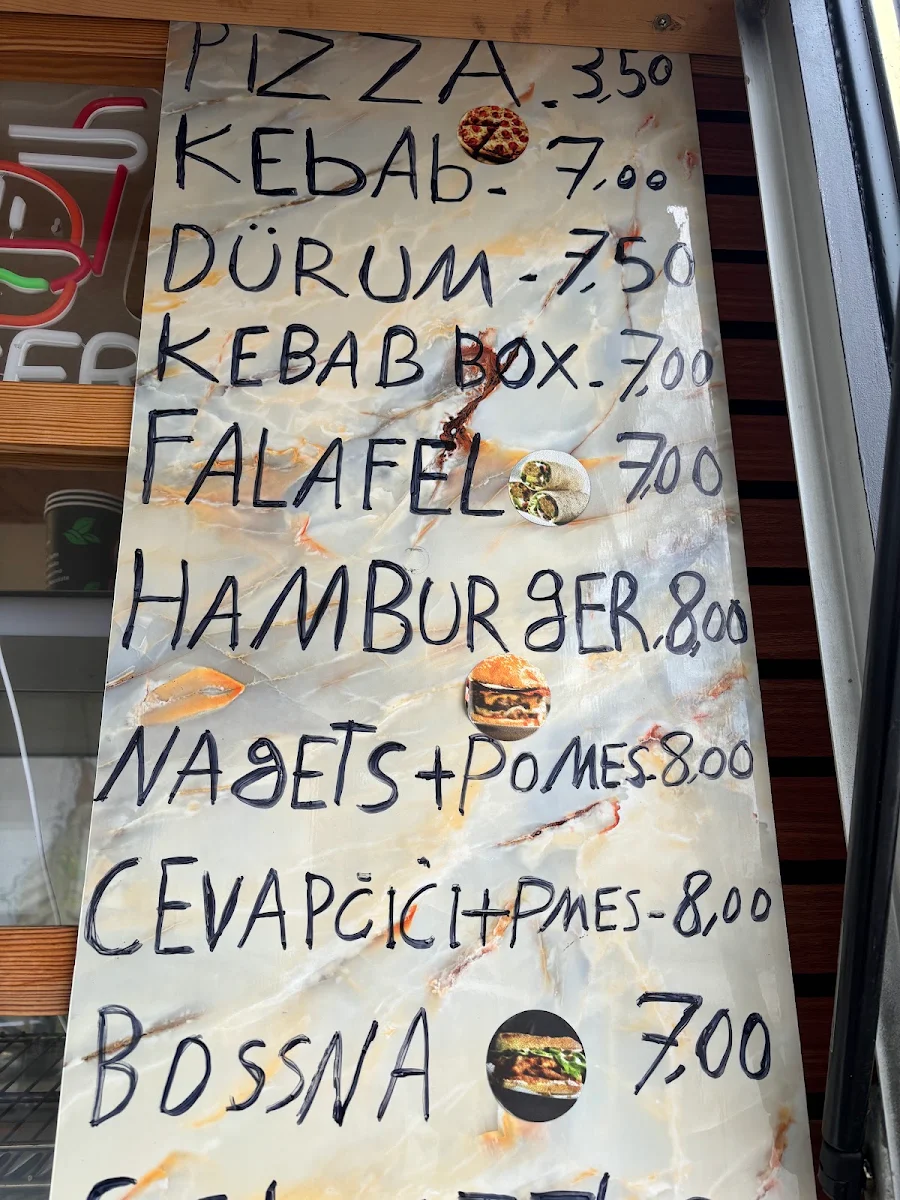 PIZZA - 3,50
KEbAb - 7,00
DÜRUM - 7,50
KEBAB BOX - 7,00
FALAFEL 7,00
HAMBURgER 8,00
NAgETS + POMES - 8,00
CEVAPČIĆI + PMES - 8,00
BOSSNA 7,00